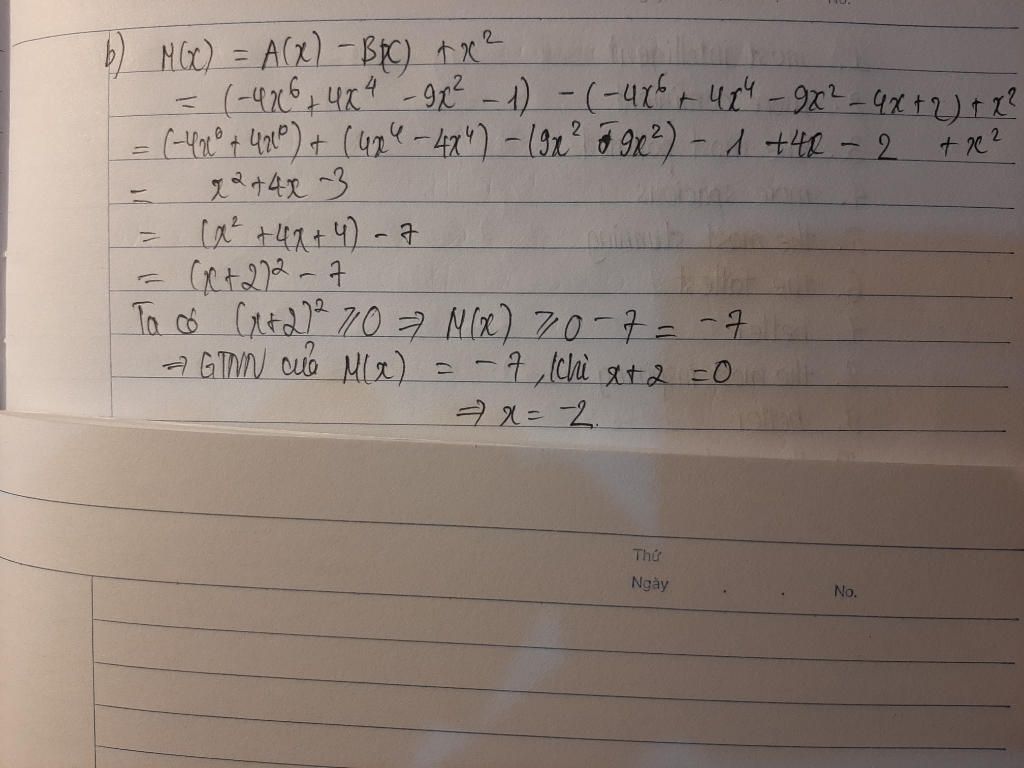 b) M(x) = A(x) - B(x) + x²
= (-4x⁶ + 4x⁴ - 9x² - 1) - (-4x⁶ + 4x⁴ - 9x² - 4x + 2) + x²
= (-4x⁶ + 4x⁶) + (4x⁴ - 4x⁴) - (9x² - 9x²) - 1 + 4x - 2 + x²
= x² + 4x - 3
= (x² + 4x + 4) - 7
= (x + 2)² - 7
Ta có (x+2)² ⩾ 0 ⇒ M(x) ⩾ 0 - 7 = -7
⇒ GTNN của M(x) = -7, khi x + 2 = 0
⇒ x = -2.
Thứ
Ngày . . No.